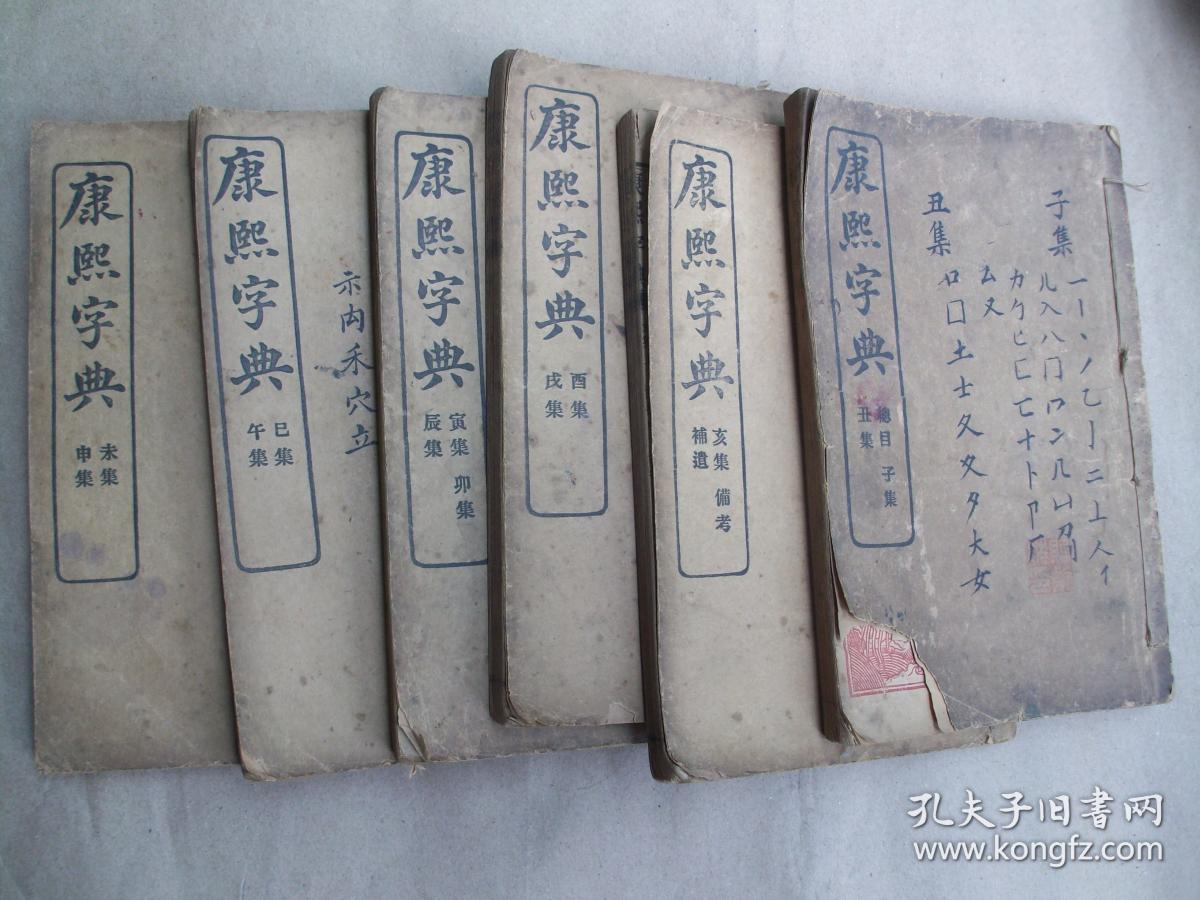 康熙字典
總目 子集
丑集
子集
一丨丶丿乙亅二亠人亻
儿入八冂冖冫几凵刀
力勹匕匚匸十卜卩厂
厶又
丑集
口囗土士夂夊夕大女
康熙字典
亥集 備考
補遺
康熙字典
酉集
戌集
康熙字典
寅集 卯集
辰集
康熙字典
巳集
午集
示禸禾穴立
康熙字典
未集
申集
孔夫子旧书网
www.kongfz.com